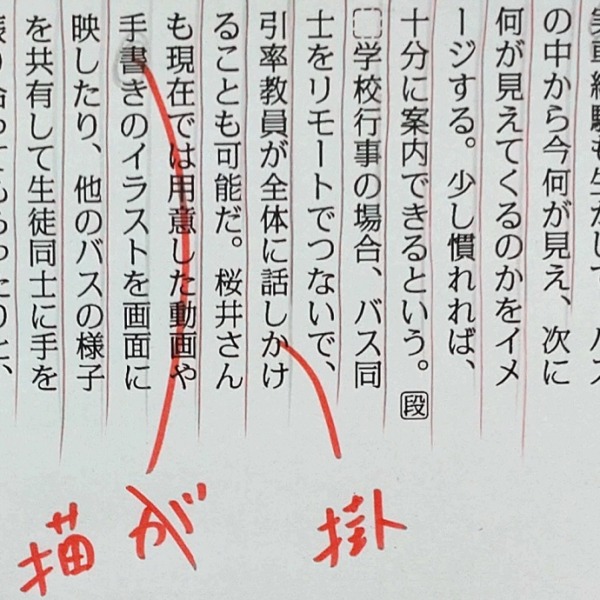 車経験も生かして、バス
の中から今何が見え、次に
何が見えてくるのかをイメ
ージする。少し慣れれば、
十分に案内できるという。段
学校行事の場合、バス同
士をリモートでつないで、
引率教員が全体に話しかけ
ることも可能だ。桜井さん
も現在では用意した動画や
手書きのイラストを画面に
映したり、他のバスの様子
を共有して生徒同士に手を
り合ってもらったりと、
描が
掛